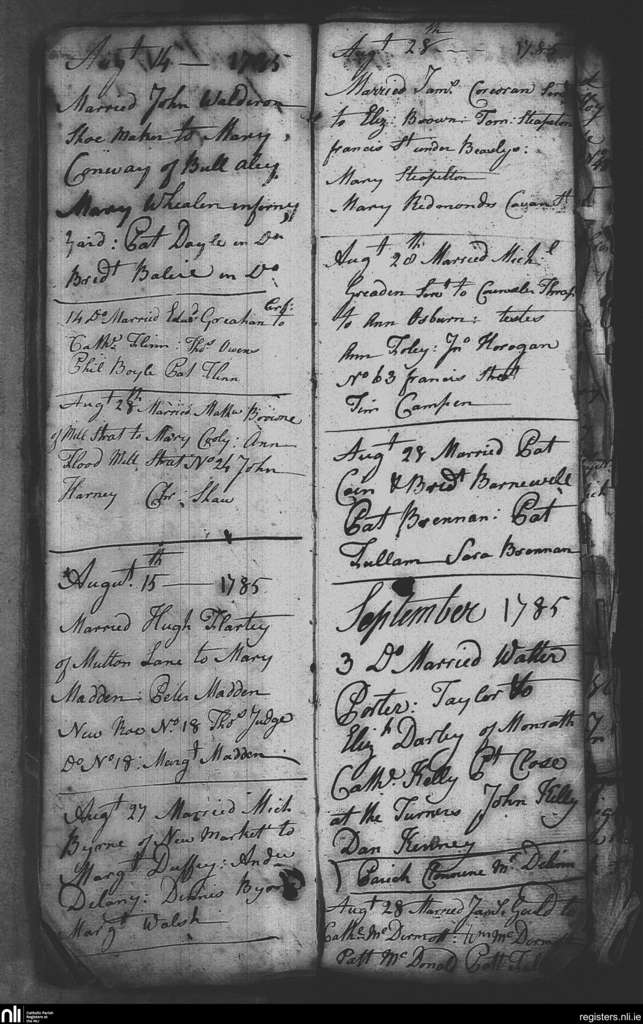 Augt 14 — 1785
Married John Walderon
Shoe Maker to Mary
Conway of Bull Aley
Mary Whealen
Yard: Pat Doyle in Do
Bridt in Do
14 Do Married Edwd to
Cathe Flinn: Thos Owens
Phil Boyle Pat Flinn
Augt 28th Married Mathw
of Mill Strat to Mary : Ann
Flood Mill Strat No 24 John
Harney Chr: Shaw
August 15th — 1785
Married Hugh Flartey
of Mutton Lane to Mary
Madden: Peter Madden
New Roe No 18 Thos Judge
Do No 18: Margt Madden
Augt 27 Married Mich
Byrne of New Market to
Margt Duffey: Andw
Delany: Dennis Byrn
Margt Walsh
Augt 28th — 1785
Married Jams Corcoran Servt
to Eliz: Brown: Tom: Steapelton
francis St under
Mary Steapelton
Mary Redmonds Cavan St
Augt 28th Married Michl
Greaden Servt to Counseler
to Ann Osburn: testes
Ann Foley: Jno Horogan
No 63 francis Street
Tim Campen
Augt 28 Married Pat
Cain & Bridt Barnewell
Pat Brennan: Pat
Fullam Sara Brennan
September 1785
3 Do Married Walter
Porter: Taylor to
Elizh Darley of Monrath
Cathe Kelly Pt Close
at the Turners John Kelly
Dan
Parish
Augt 28 Married Jams Gould to
Cathe McDermott: Wm McDermott
Patt McDonald Patt
nli
Catholic Parish
Registers at
the NLI
registers.nli.ie